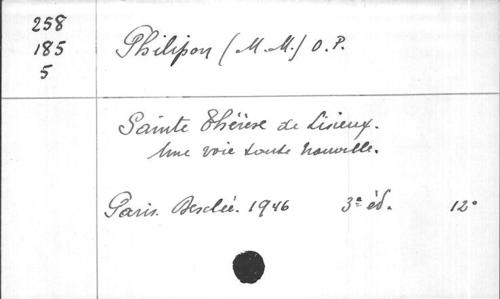 258
185
5
Philipon (M.M.) O.P.
Sainte Thérèse de Lisieux.
Une voie toute nouvelle.
Paris. Desclée. 1946 3e éd. 12°